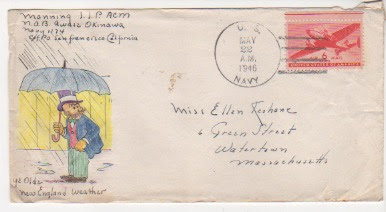 Manning L.L.P. ACM
N.O.B. Awase Okinawa
Navy 1134
℅ F.P.O. San Francisco California
U. S.
MAY
22
A.M.
1946
NAVY
6¢
AIR MAIL
UNITED STATES OF AMERICA
Miss Ellen
6 Green Street
Watertown
Massachusetts
Ye Olde
New England Weather